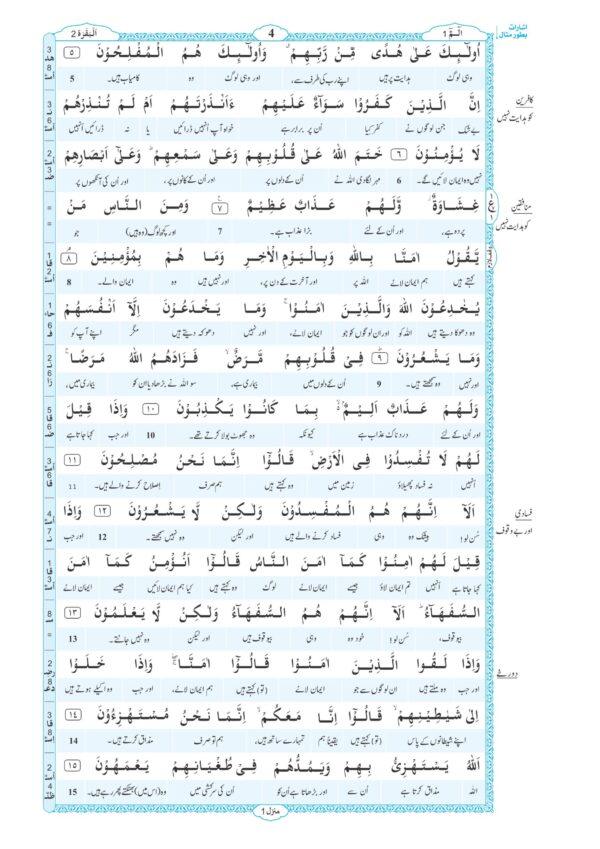 اشارات
بطور مثال
الٓمّٓ 1
4
اَلْبَقَرَة 2
اُولٰٓئِكَ عَلٰى هُدًى مِّنْ رَّبِّهِمْ ۗ وَاُولٰٓئِكَ هُمُ الْمُفْلِحُوْنَ ٥
وہی لوگ ہدایت پر ہیں اپنے رب کی طرف سے، اور وہی لوگ وہ کامیاب ہیں۔ 5
کافرین
کو ہدایت نہیں
اِنَّ الَّذِيْنَ كَفَرُوْا سَوَآءٌ عَلَيْهِمْ ءَاَنْذَرْتَهُمْ اَمْ لَمْ تُنْذِرْهُمْ
بے شک جن لوگوں نے کفر کیا اُن پر برابر ہے خواہ آپ انہیں ڈرائیں یا نہ ڈرائیں انہیں
لَا يُؤْمِنُوْنَ ٦ خَتَمَ اللّٰهُ عَلٰى قُلُوْبِهِمْ وَعَلٰى سَمْعِهِمْ ۗ وَعَلٰٓى اَبْصَارِهِمْ
نہیں وہ ایمان لائیں گے۔ 6 مہر لگا دی اللہ نے اُن کے دلوں پر اور اُن کے کانوں پر، اور اُن کی آنکھوں پر
منافقین
کو ہدایت نہیں
غِشَاوَةٌ ۙ وَّلَهُمْ عَذَابٌ عَظِيْمٌ ٧ وَمِنَ النَّاسِ مَنْ
پردہ ہے، اور اُن کے لئے بڑا عذاب ہے۔ 7 اور کچھ لوگ (وہ ہیں) جو
يَّقُوْلُ اٰمَنَّا بِاللّٰهِ وَبِالْيَوْمِ الْاٰخِرِ وَمَا هُمْ بِمُؤْمِنِيْنَ ٨
کہتے ہیں ہم ایمان لائے اللہ پر اور آخرت کے دن پر، اور نہیں ہیں وہ ایمان والے۔ 8
يُخٰدِعُوْنَ اللّٰهَ وَالَّذِيْنَ اٰمَنُوْا ۚ وَمَا يَخْدَعُوْنَ اِلَّآ اَنْفُسَهُمْ
وہ دھوکا دیتے ہیں اللہ کو اور ان لوگوں کو جو ایمان لائے، اور نہیں دھوکہ دیتے ہیں مگر اپنے آپ کو
وَمَا يَشْعُرُوْنَ ٩ فِيْ قُلُوْبِهِمْ مَّرَضٌ ۙ فَزَادَهُمُ اللّٰهُ مَرَضًا ۚ
اور نہیں وہ سمجھتے ہیں۔ 9 اُن کے دلوں میں بیماری ہے، سو اللہ نے بڑھا دیا ان کو بیماری میں،
وَلَهُمْ عَذَابٌ اَلِيْمٌ ۢ بِمَا كَانُوْا يَكْذِبُوْنَ ١٠ وَاِذَا قِيْلَ
اور اُن کے لئے دردناک عذاب ہے کیونکہ وہ جھوٹ بولا کرتے تھے۔ 10 اور جب کہا جاتا ہے
لَهُمْ لَا تُفْسِدُوْا فِي الْاَرْضِ ۙ قَالُوْٓا اِنَّمَا نَحْنُ مُصْلِحُوْنَ ١١
انہیں نہ فساد پھیلاؤ زمین میں وہ کہتے ہیں ہم صرف اصلاح کرنے والے ہیں۔ 11
فسادی
اور بے وقوف
اَلَآ اِنَّهُمْ هُمُ الْمُفْسِدُوْنَ وَلٰكِنْ لَّا يَشْعُرُوْنَ ١٢ وَاِذَا
سُن لو! بیشک وہ وہی فساد کرنے والے ہیں اور لیکن وہ نہیں سمجھتے۔ 12 اور جب
قِيْلَ لَهُمْ اٰمِنُوْا كَمَآ اٰمَنَ النَّاسُ قَالُوْٓا اَنُؤْمِنُ كَمَآ اٰمَنَ
کہا جاتا ہے انہیں تم ایمان لاؤ جیسے ایمان لائے لوگ وہ کہتے ہیں کیا ہم ایمان لائیں جیسے ایمان لائے
السُّفَهَآءُ ۗ اَلَآ اِنَّهُمْ هُمُ السُّفَهَآءُ وَلٰكِنْ لَّا يَعْلَمُوْنَ ١٣
بیوقوف، سُن لو! خود وہ وہی بیوقوف ہیں اور لیکن وہ نہیں جانتے۔ 13
دورنے
وَاِذَا لَقُوا الَّذِيْنَ اٰمَنُوْا قَالُوْٓا اٰمَنَّا ۖ وَاِذَا خَلَوْا
اور جب وہ ملتے ہیں ان لوگوں سے جو ایمان لائے (تو) کہتے ہیں ہم ایمان لائے، اور جب وہ اکیلے ہوتے ہیں
اِلٰى شَيٰطِيْنِهِمْ ۙ قَالُوْٓا اِنَّا مَعَكُمْ ۙ اِنَّمَا نَحْنُ مُسْتَهْزِءُوْنَ ١٤
اپنے شیطانوں کے پاس (تو) کہتے ہیں یقیناً ہم تمہارے ساتھ ہیں، ہم تو صرف مذاق کرتے ہیں۔ 14
اَللّٰهُ يَسْتَهْزِئُ بِهِمْ وَيَمُدُّهُمْ فِيْ طُغْيَانِهِمْ يَعْمَهُوْنَ ١٥
اللہ مذاق کرتا ہے اُن سے اور بڑھاتا ہے اُن کو اُن کی سرکشی میں وہ (اس میں) بھٹکتے پھر رہے ہیں۔ 15
منزل 1